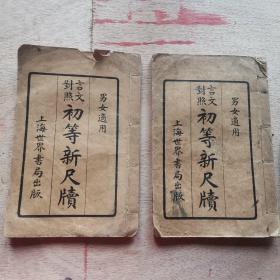 男女適用
言文對照
初等新尺牘
上海世界書局出版
男女適用
言文對照
初等新尺牘
上海世界書局出版